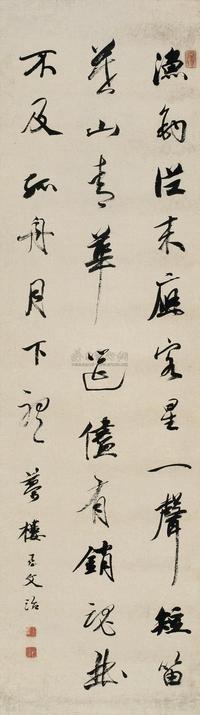 漁釣從來應客星一聲短笛
暮山青華筵儘有銷魂
不及孤舟月下聽 夢樓王文治